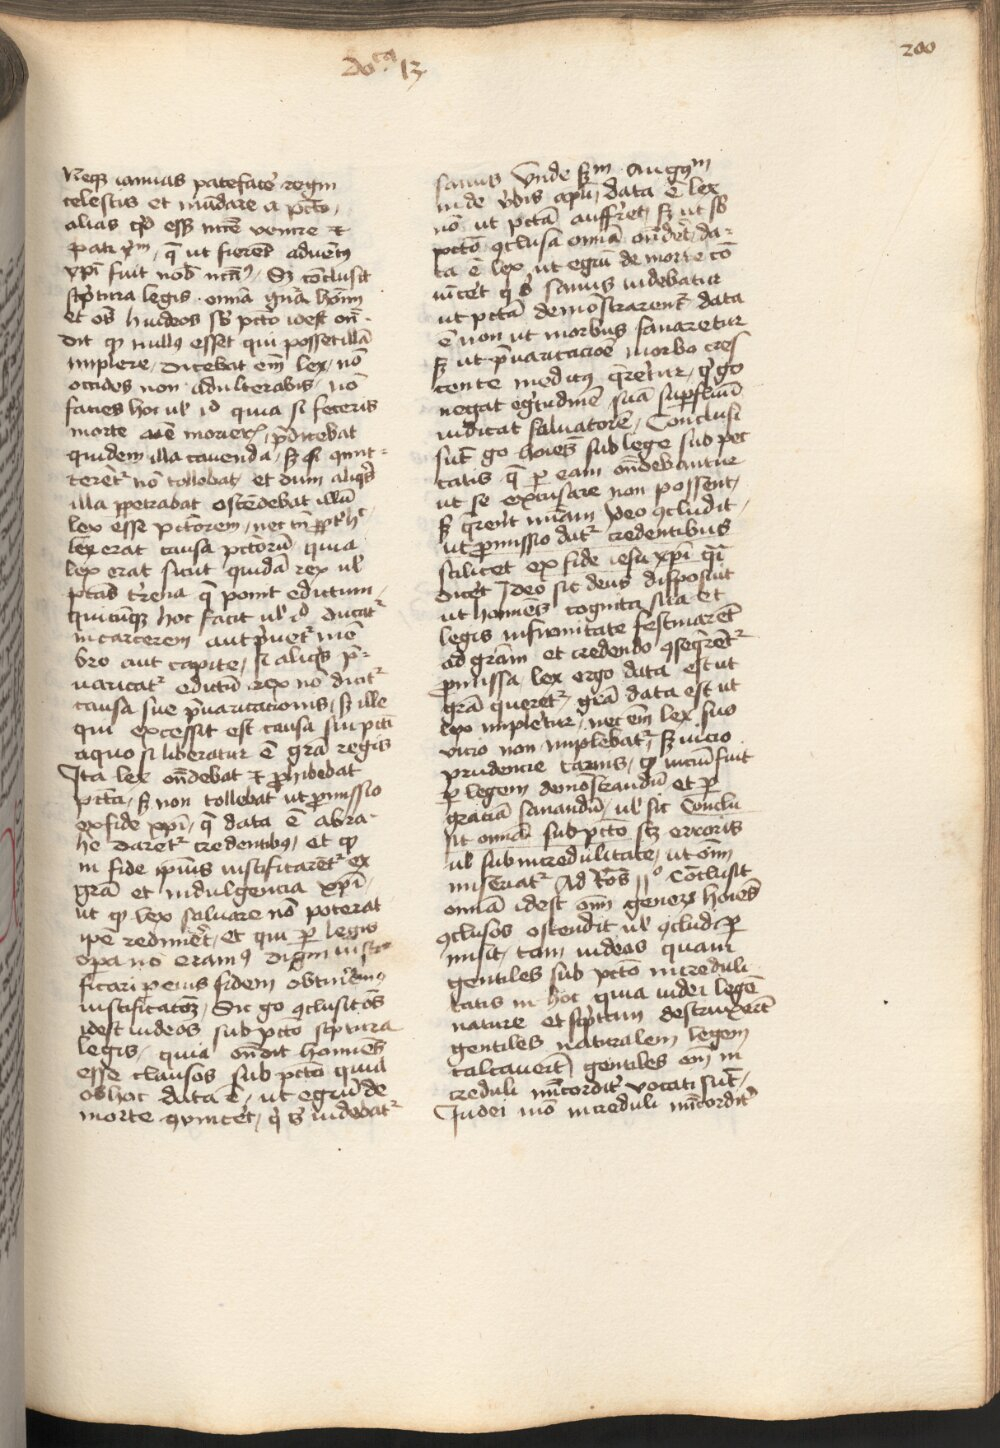 Do^ca 13
200
Neqꝫ ianuas patefacē regni
celestis et mūdare a pctō /
alias qͥd eēt nccē venire ⁊
pati xp̄m / q̄ ut fierēt aduētꝰ
xpī fuit nob̄ nccāꝰ / Sꝫ cōclusit
scͥptura legis omīa gn̄a hōīm
et oēs iudeos sb̄ pctō idest on̄-
dit ꝙ nullꝰ esset qui posset illā
implere / Dicebat em̄ lex / nō
occides non adulterabis / nō
facies hoc ul̛ id quia si feceris
morte morierꝭ / p̄dicebat
quidem illa cauenda / sꝫ si
terēt̛ nō tollebat / et dum aliqͥs
illa ꝑpetrabat ostēdebat illū
lex esse pctōrem / nec tn̄ ꝓpt̛ hͨ
lex erat causa pctōrū quia
lex erat sicut quidā rex ul̛
ptās t̛rena q̄ ponit edictum /
quicūqꝫ hoc facit ul̛ id ducat̛
in carcerem aut pͥuet̛ mē
bro aut capite / si aliqͥs p̄-
uaricat̛ edictū rex nō dicit̛
causa sue p̄uaricacionis / sꝫ ille
qui excessit est causa sui pcti
a quo si liberatur ē grā regis
Ita lex on̄debat ⁊ ꝓhibebat
pctā / sꝫ non tollebat ut ꝓmissio
ex fide xpī / q̄ data ē abra-
he daret̛ credentibꝰ / et ꝙ
in fide ipiūs iustificarēt̛ ex
grā et indulgencia xpī /
ut ꝙ lex saluare nō poterat
ipē redimēt / et qui ꝑ legis
oꝑa nō eramꝰ digni iusti-
ficari ꝑ eius fidem obtinerem̄
iustificatōꝫ / Sic go ꝯclusit oēs
idest iudeos sub pctō scͥptura
legis / quia on̄dit homines
esse clausos sub pctō quia
ob hoc data ē / ut egrū de
morte ꝯuincēt / qͥ s̛ uidebat̛
sanus vnde scd̄m Augꝯm
in de v̛bis apl̄i / data ē lex
nō ut pctā auffr̛et / sꝫ ut sb̄
pctō ꝯclusa omīa on̄dēt / da-
ta ē lex ut egrū de morte cō
uīcēt qͥ s̛ sanus uidebatur
ut pctā demōstrarent̛ data
ē non ut morbus sanaretur
sꝫ ut p̄uaricacioē morbo cres
cente medicꝰ q̄reretur / qͥ go
negat egͥtudinē suā suꝑfluū
iudicat saluatorē / Conclusi
sūt go hoīes sub lege sub pec
catis q̄ ꝑ eam on̄debantur
ut se excusare non possent /
sꝫ q̄rent uīam Ideo ꝯcludit /
ut ꝓmissio dat̛ credentibus
scilicet ex fide iesu xpī q̄i
dicēt Ideo sic deus disposuit
ut homines cognita sua et
legis infirmitate festinarēt
ad grām et credendo ꝯseq̄rēt̛
ꝓmissa / lex ergo data est ut
grā queret̛ / grā data est ut
lex impletur / nec em̄ lex suo
vicio non implebat̛ / sꝫ uicio
prudencie carnis / ꝙ uiciū fuit
ꝑ legem demōstrandū et ꝑ
graciā sanandū / ul̛ sic Conclu
sit omīa sub pctō scꝫ erroris
ul̛ sub incredulitate / ut oīm
miseriat̛ Ad Rōs 11° Cōclusit
omīa idest oīm generꝭ hoīes
ꝯclusos ostendit ul̛ ꝯcludi ꝑ
misit / tam iudeos quam
gentiles sub pctō increduli
tatis in hoc quia iudei legē
nature et scͥptam destruxerūt
gentiles naturalem legem
calcauerūt / gentiles em̄ in
creduli mīcordit̛ vocati sūt /
Iudei mō increduli mīcordit̛